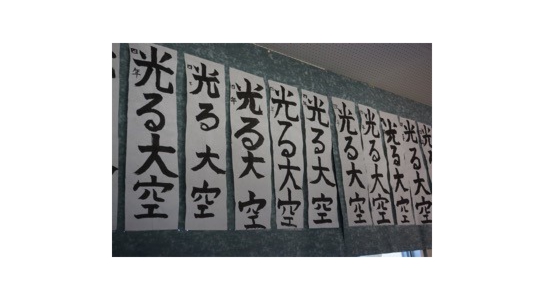 光る大空
四年
光る大空
光る大空
四年
光る大空
光る大空
光る大空
光る大空
光る大空
光る大空